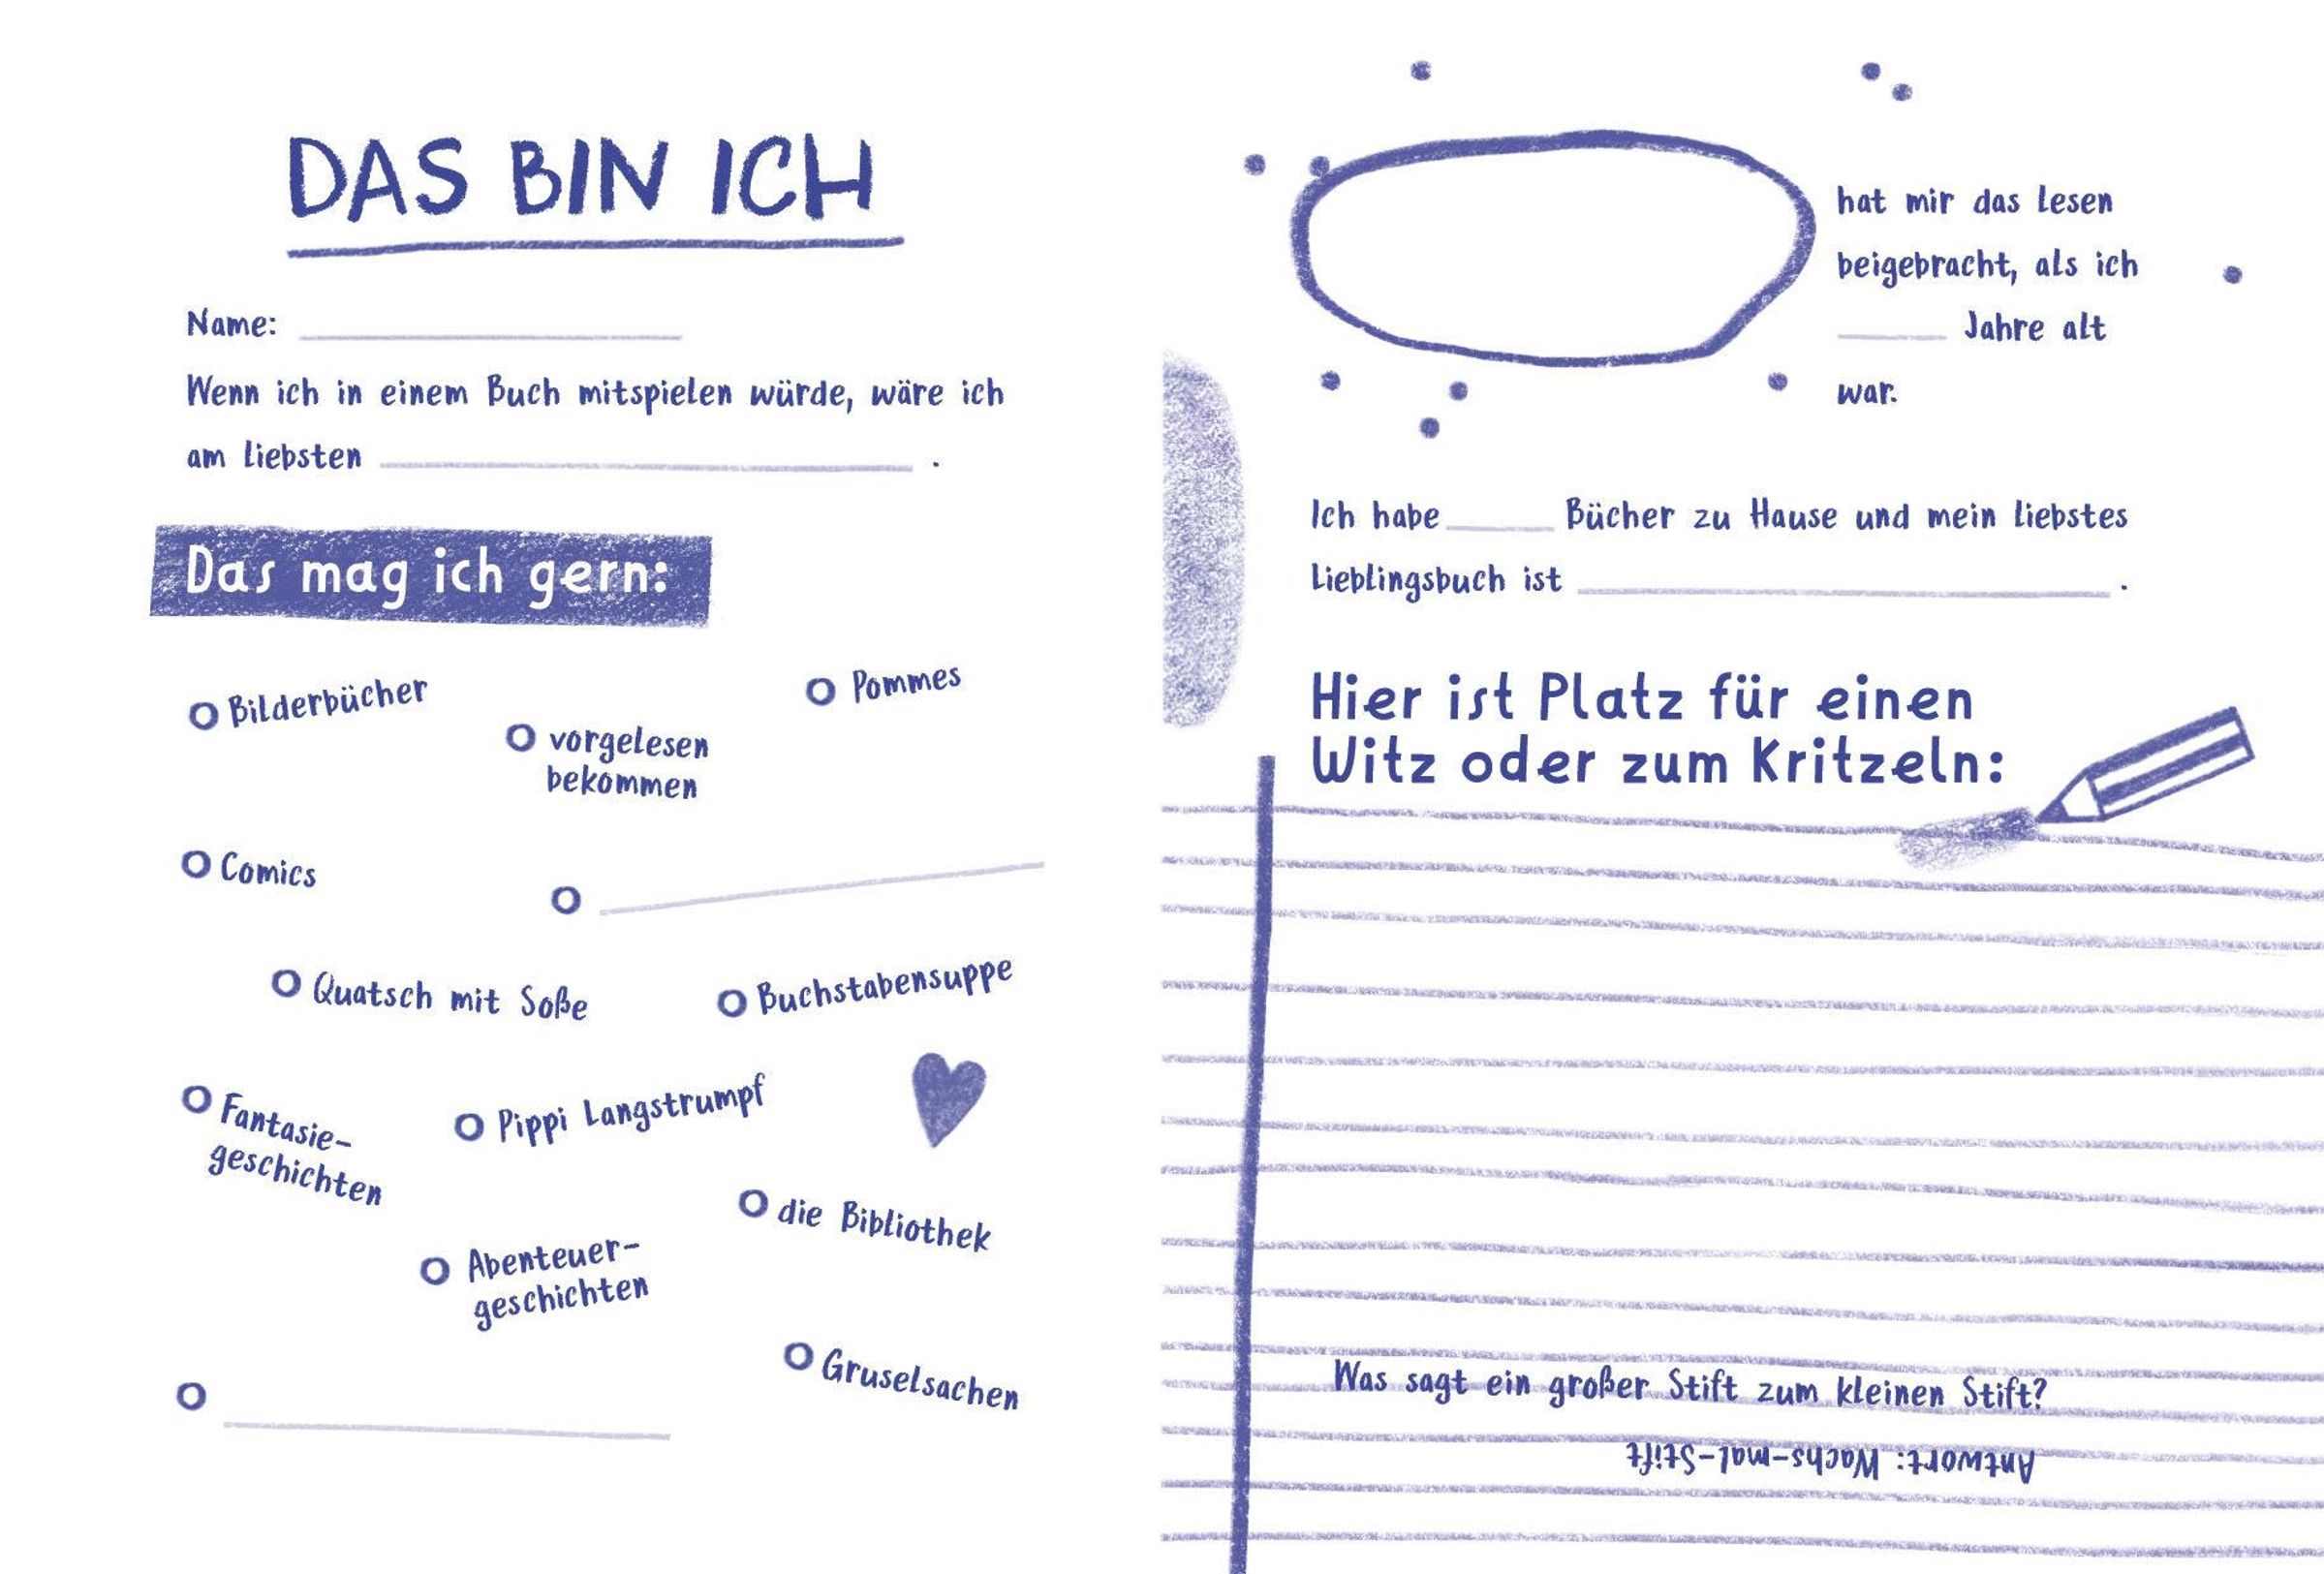 DAS BIN ICH
Name:
Wenn ich in einem Buch mitspielen würde, wäre ich
am liebsten .
Das mag ich gern:
Bilderbücher
vorgelesen
bekommen
Pommes
Comics
Quatsch mit Soße
Buchstabensuppe
Fantasie-
geschichten
Pippi Langstrumpf
die Bibliothek
Abenteuer-
geschichten
Gruselsachen
hat mir das Lesen
beigebracht, als ich
Jahre alt
war.
Ich habe Bücher zu Hause und mein liebstes
Lieblingsbuch ist .
Hier ist Platz für einen
Witz oder zum Kritzeln:
Was sagt ein großer Stift zum kleinen Stift?
Antwort: Wachs-mal-Stift